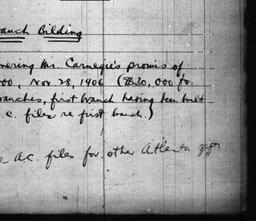 ranch Bilding
nering Mr. Carnegie's promis of
00, Nov 28, 1906 ($30,000 for
ranches, first branch having been built
. c. files re first branch.)
A.C. files for other Atlanta